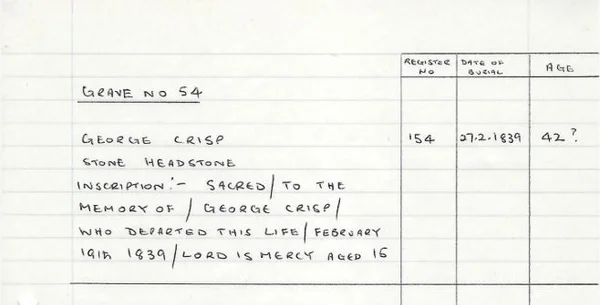 REGISTER NO DATE OF BURIAL AGE
GRAVE NO 54
GEORGE CRISP 154 27.2.1839 42?
STONE HEADSTONE
INSCRIPTION:- SACRED/ TO THE
MEMORY OF / GEORGE CRISP/
WHO DEPARTED THIS LIFE/ FEBRUARY
19TH 1839/ LORD IS MERCY AGED 16